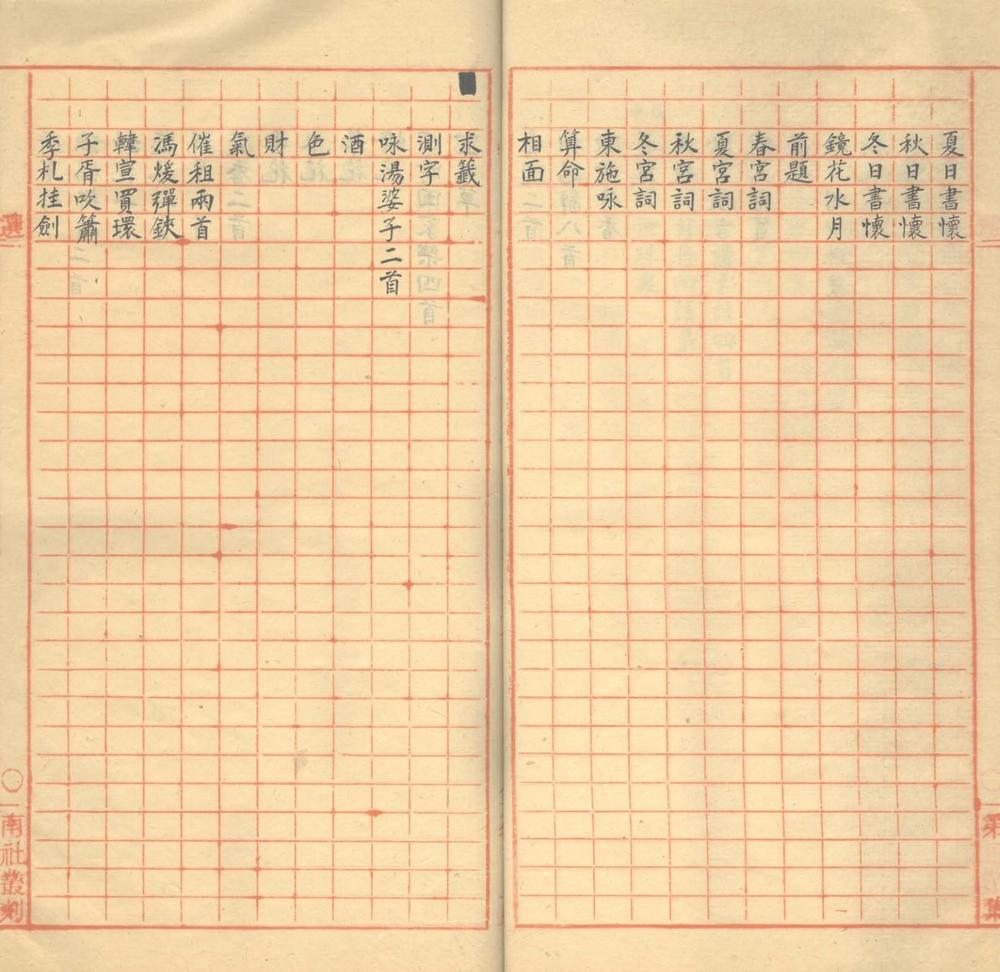 夏日書懷
秋日書懷
冬日書懷
鏡花水月
前題
春宮詞
夏宮詞
秋宮詞
冬宮詞
東施咏
算命
相面
求籤
測字
咏湯婆子二首
酒
色
財
氣
催租兩首
馮煖彈鋏
韓宣買環
子胥吹簫
季札挂劍
選
南社叢刻